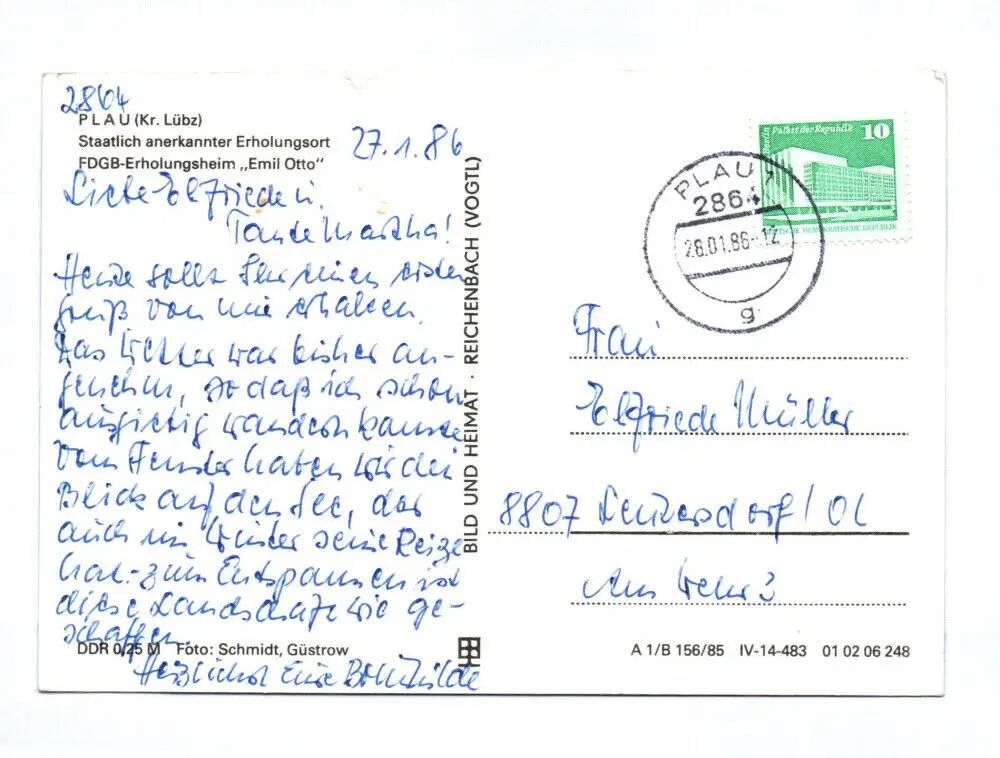 2864
PLAU (Kr. Lübz)
Staatlich anerkannter Erholungsort
FDGB-Erholungsheim „Emil Otto"
27.1.86
Liebe Elfriede u.
Tante Martha!
Heute sollt Ihr einen ersten
Gruß von mir erhalten.
Das Wetter war bisher an-
genehm, so daß ich schon
ausgiebig wandern konnte
Vom Fenster haben wir den
Blick auf den See, der
auch im Winter seine Reize
hat. – zum Entspannen ist
diese Landschaft wie ge-
schaffen.
Herzlichst Eure
DDR 0,25 M Foto: Schmidt, Güstrow
BILD UND HEIMAT · REICHENBACH (VOGTL)
Berlin Palast der Republik 10
DEUTSCHE DEMOKRATISCHE REPUBLIK
PLAU 1
2864
28.01.86-12
g
Frau
Elfriede Müller
8807 Leutersdorf / OL
Am Wehr 3
A 1/B 156/85 IV-14-483 01 02 06 248